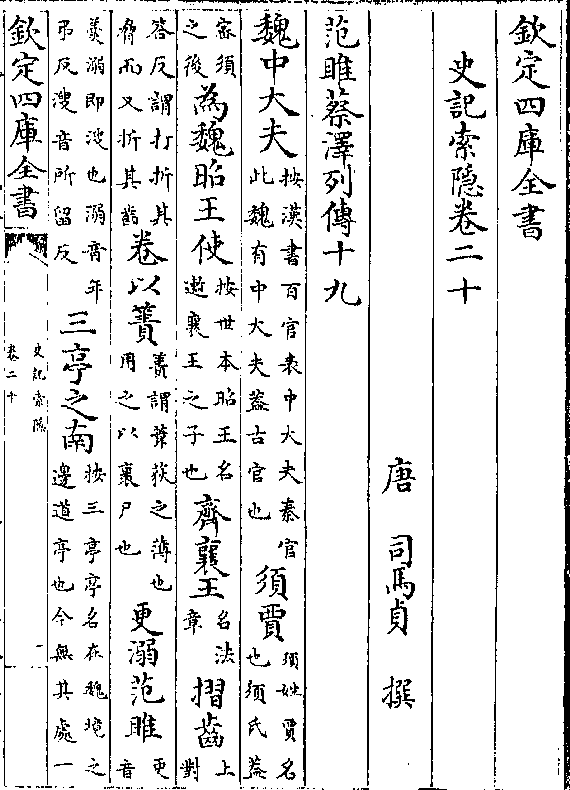 欽定四庫全書
史記索隱卷二十
唐 司馬貞 撰
范睢蔡澤列傳十九
魏中大夫按漢書百官表中大夫秦官此魏有中大夫蓋古官也須賈須姓賈名也須氏蓋
密須之後為魏昭王使按世本昭王名遫襄王之子也齊襄王名法章摺齒上對
答反謂打折其脅而又折其齒卷以簀簀謂葦荻之薄也用之以裹尸也更溺范睢更音
羹溺即溲也溺音年弔反溲音所留反三亭之南按三亭亭名在魏境之邊道亭也今無其處一
欽定四庫全書
史記索隱
卷二十